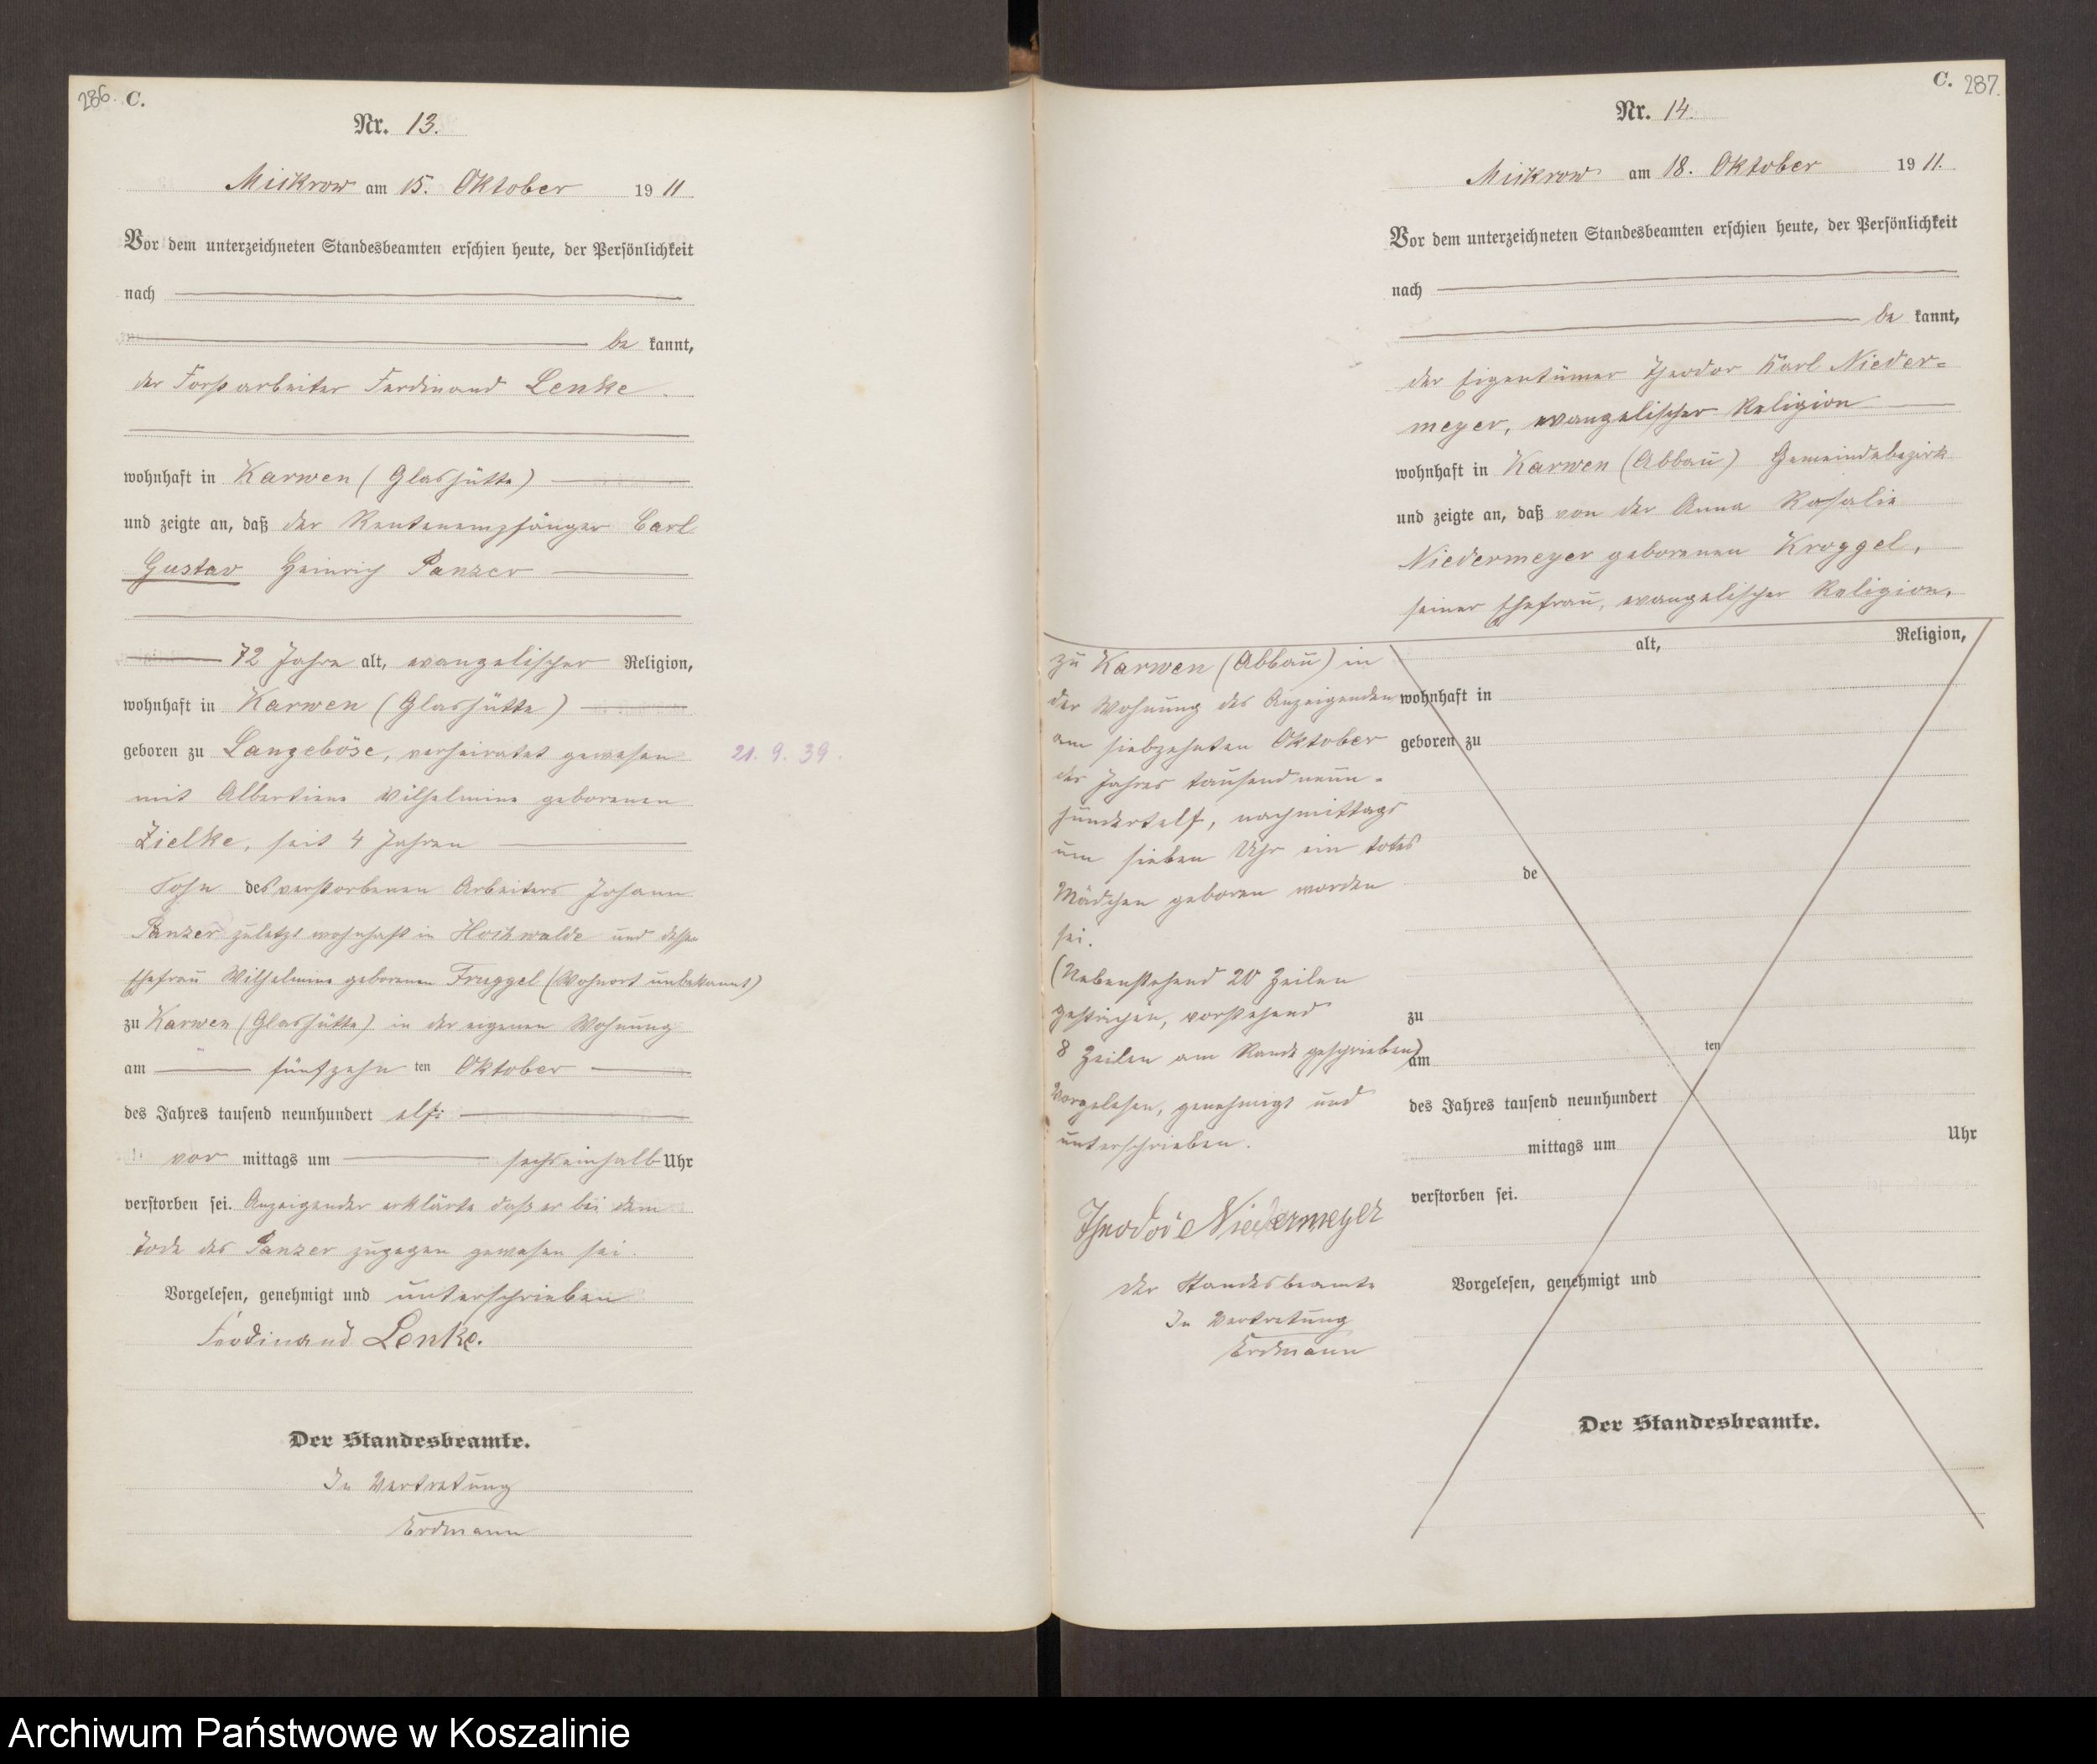 286. C.
Nr. 13.
Mikrow am 15. Oktober 1911
Vor dem unterzeichneten Standesbeamten erschien heute, der Persönlichkeit
nach
be kannt,
der Forstarbeiter Ferdinand Lenke.
wohnhaft in Karwen (Glashütte)
und zeigte an, daß der Rentenempfänger Carl
Gustav Heinrich Panzer
72 Jahre alt, evangelischer Religion,
wohnhaft in Karwen (Glashütte)
geboren zu Langeböse, verheiratet gewesen 21. 9. 39.
mit Albertine Wilhelmine geborenen
Zielke, seit 4 Jahren
Sohn des verstorbenen Arbeiters Johann
Panzer zuletzt wohnhaft in und dessen
Ehefrau Wilhelmine geborenen Fruggel (Wohnort unbekannt)
zu Karwen (Glashütte) in der eigenen Wohnung
am fünfzehn ten Oktober
des Jahres tausend neunhundert elf
vor mittags um sechseinhalb Uhr
verstorben sei. Anzeigender erklärte daß er bei dem
Tode des Panzer zugegen gewesen sei.
Vorgelesen, genehmigt und unterschrieben
Ferdinand Lenke.
Der Standesbeamte.
In Vertretung
Erdmann
C. 287.
Nr. 14.
Mikrow am 18. Oktober 1911.
Vor dem unterzeichneten Standesbeamten erschien heute, der Persönlichkeit
nach
be kannt,
der Eigentümer Theodor Karl Nieder=
meyer, evangelischer Religion
wohnhaft in Karwen (Abbau) Gemeindebezirk
und zeigte an, daß von der Anna Rosalie
Niedermeyer geborenen Kroggel,
seiner Ehefrau, evangelischer Religion,
zu Karwen (Abbau) in
der Wohnung des Anzeigenden
am siebzehnten Oktober
des Jahres tausendneun=
hundertelf, nachmittags
um sieben Uhr ein totes
Mädchen geboren worden
sei.
(Nebenstehend 20 Zeilen
gestrichen, vorstehend
8 Zeilen am Rande geschrieben)
Vorgelesen, genehmigt und
unterschrieben.
Theodor Niedermeyer
Der Standesbeamte
In Vertretung
Erdmann
alt, Religion,
wohnhaft in
geboren zu
de
zu
am ten
des Jahres tausend neunhundert
mittags um Uhr
verstorben sei.
Vorgelesen, genehmigt und
Der Standesbeamte.
Archiwum Państwowe w Koszalinie